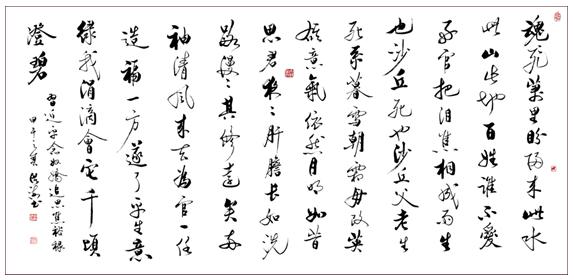 魂飛萬里盼歸來此水
此山此地百姓誰不愛
好官把泪焦桐成雨生
也沙丘死也沙丘父老生
死系暮雪朝霜毋改英
雄意氣依然月明如昔
思君夜〻肝膽長如洗
路漫〻其修遠矣兩
袖清風來去為官一任
造福一方遂了平生意
綠我涓滴會它千頃
澄碧
習近平念奴嬌追思焦裕祿
甲午之夏 书